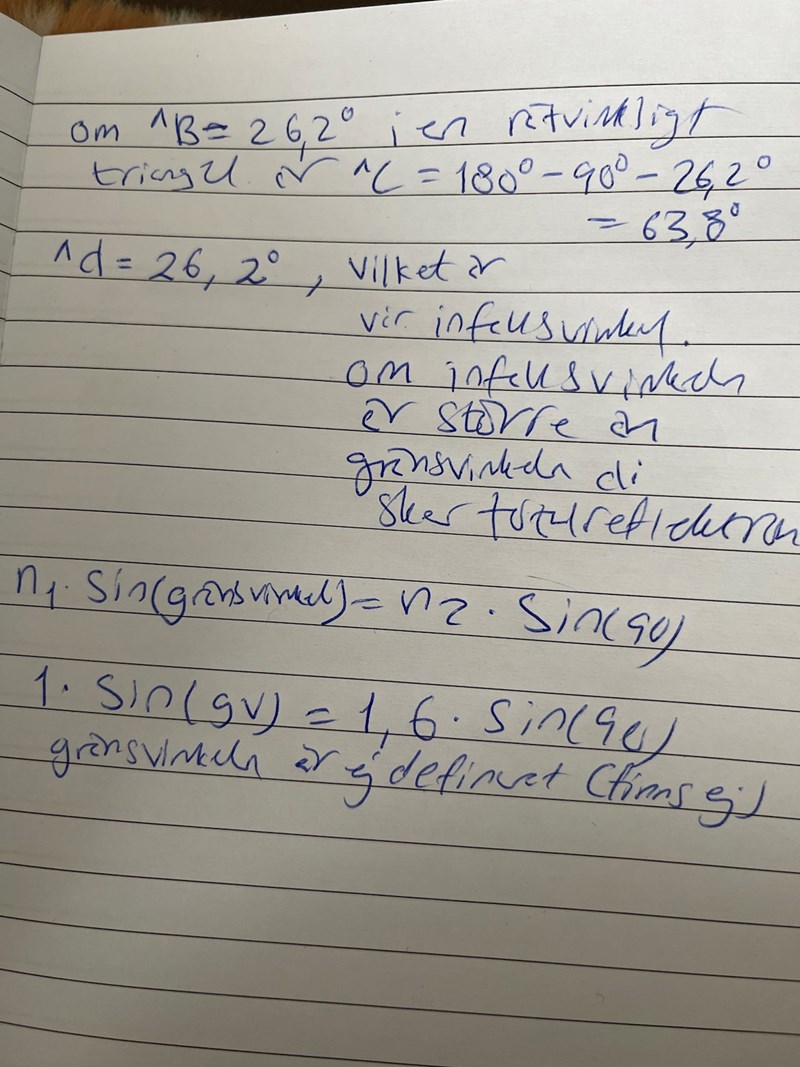 om ^B= 26,2° i en rätvinkligt
triangel är ^C = 180° - 90° - 26,2°
= 63,8°
^d = 26,2°, vilket är
vår infallsvinkel.
om infallsvinkeln
är större än
gränsvinkeln då
sker totalreflektion
n1 · Sin(gränsvinkel) = n2 · Sin(90)
1 · Sin(gv) = 1,6 · Sin(90)
gränsvinkeln är ej definerat (finns ej)